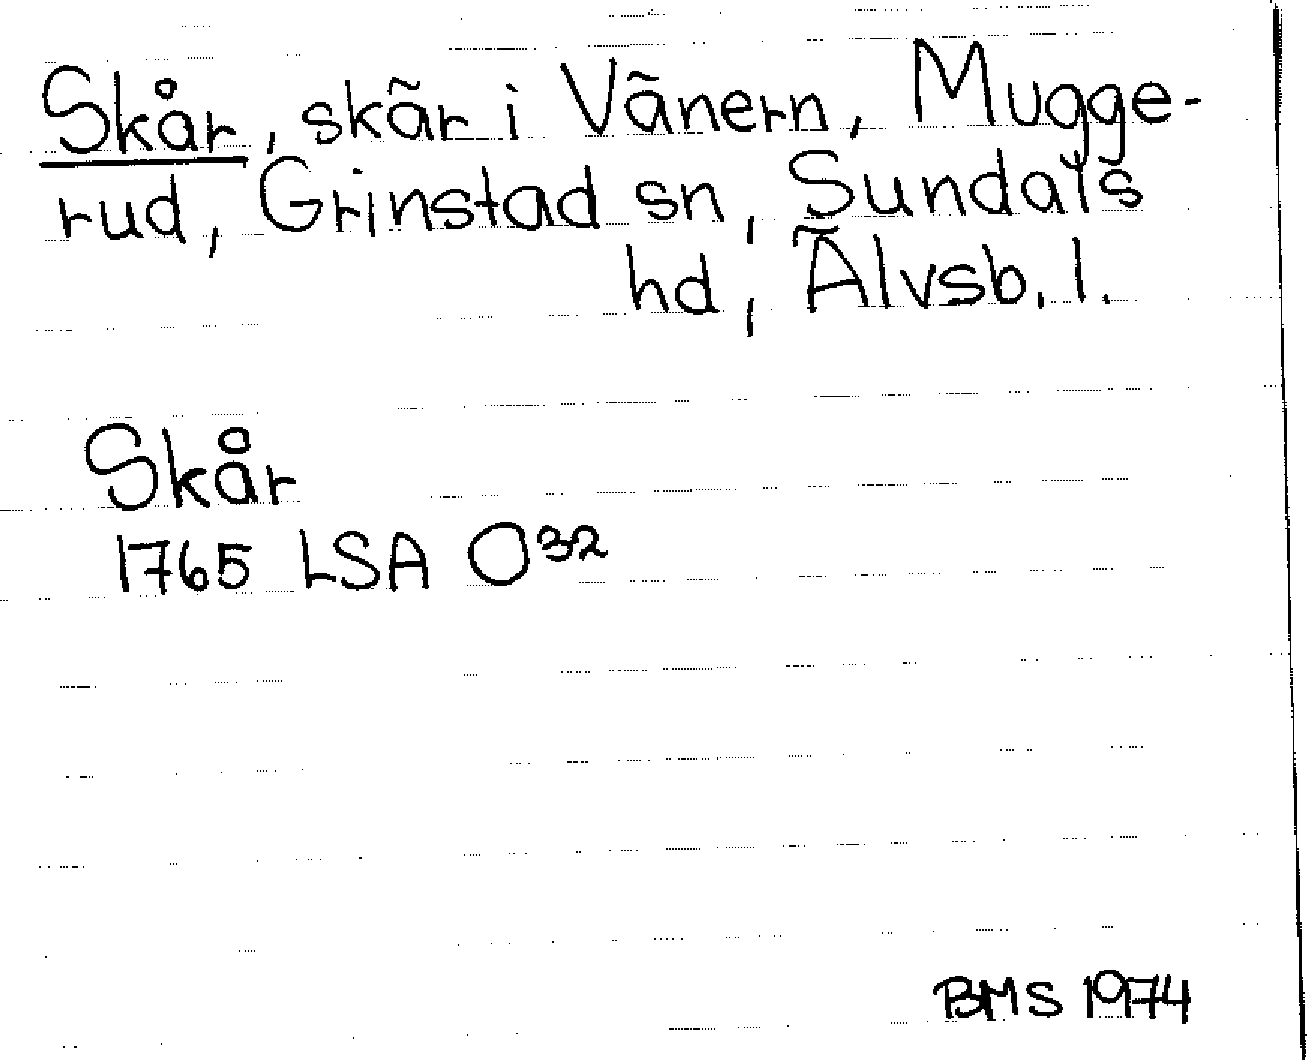 Skår, skär i Vänern, Mugge-
rud, Grinstad sn, Sundals
hd, Älvsb. l.
Skår
1765 LSA O32
BMS 1974